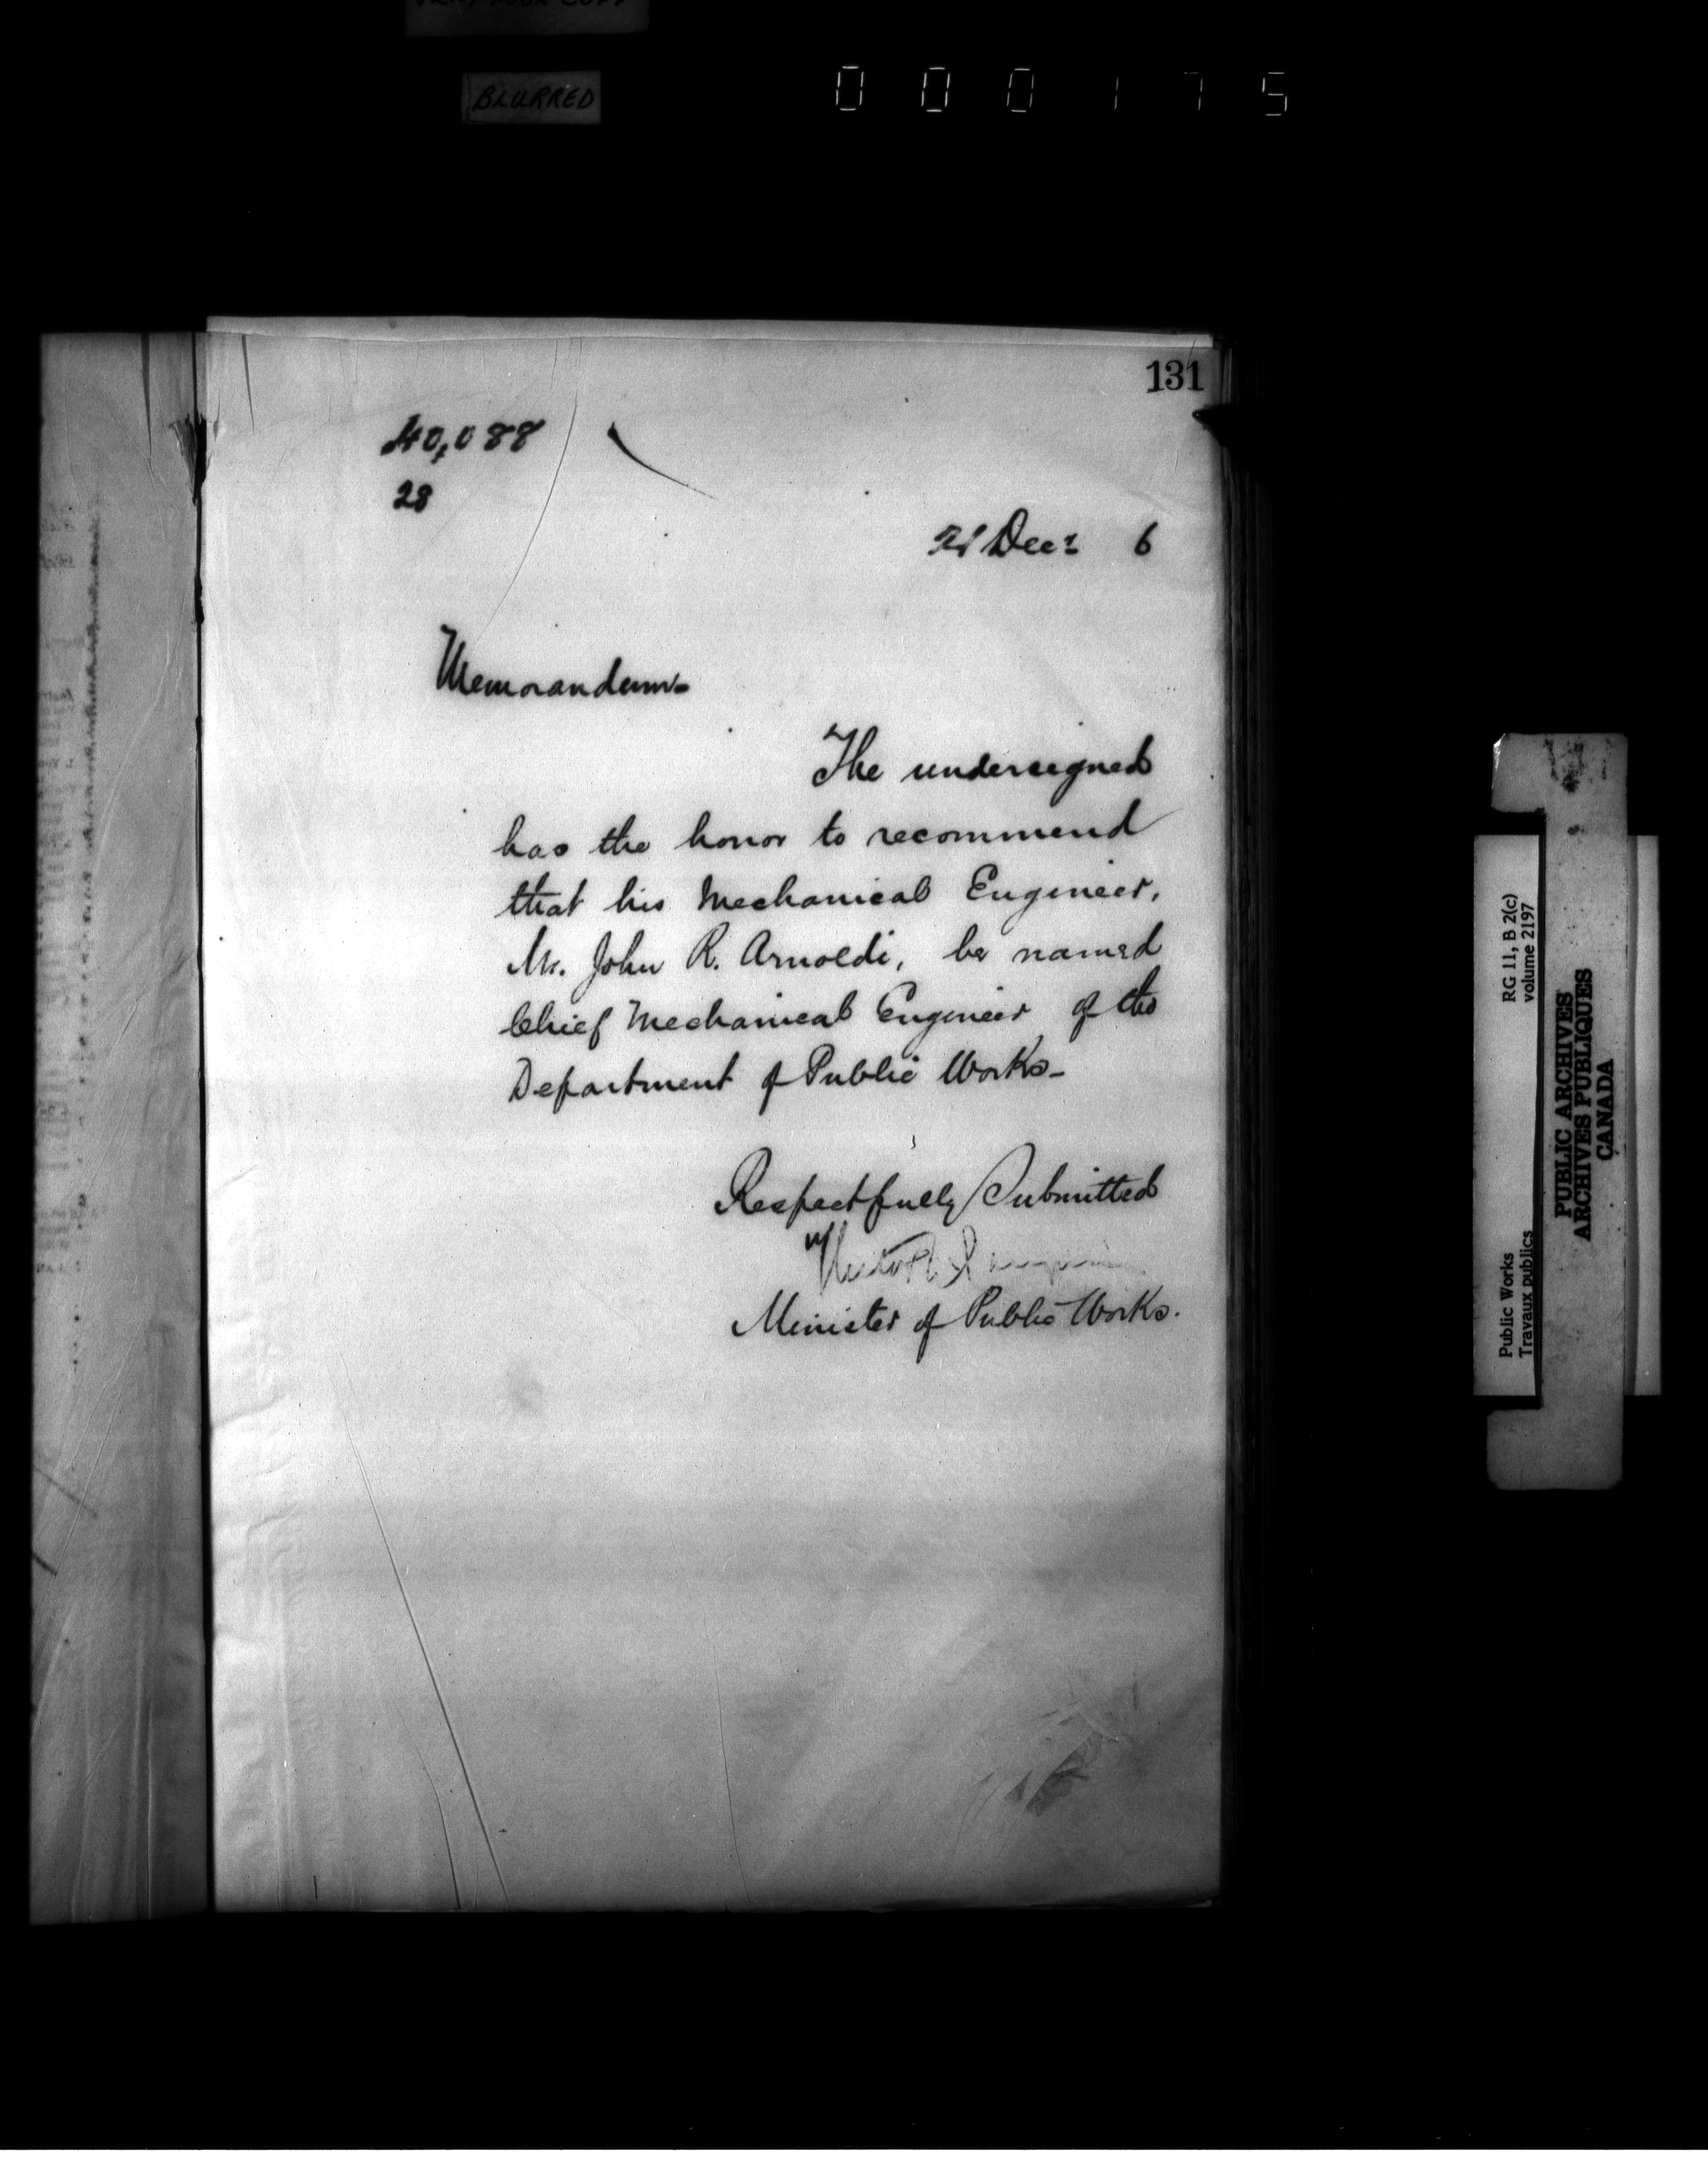 BLURRED
000175
131
40,088
28
21 Decr 6
Memorandum-
The undersigned
has the honor to recommend
that his Mechanical Engineer,
Mr. John R. Arnoldi, be named
Chief Mechanical Engineer of the
Department of Public Works-
Respectfully Submitted
Minister of Public Works.
Public Works
Travaux publics
RG 11, B 2(c)
volume 2197
PUBLIC ARCHIVES
ARCHIVES PUBLIQUES
CANADA